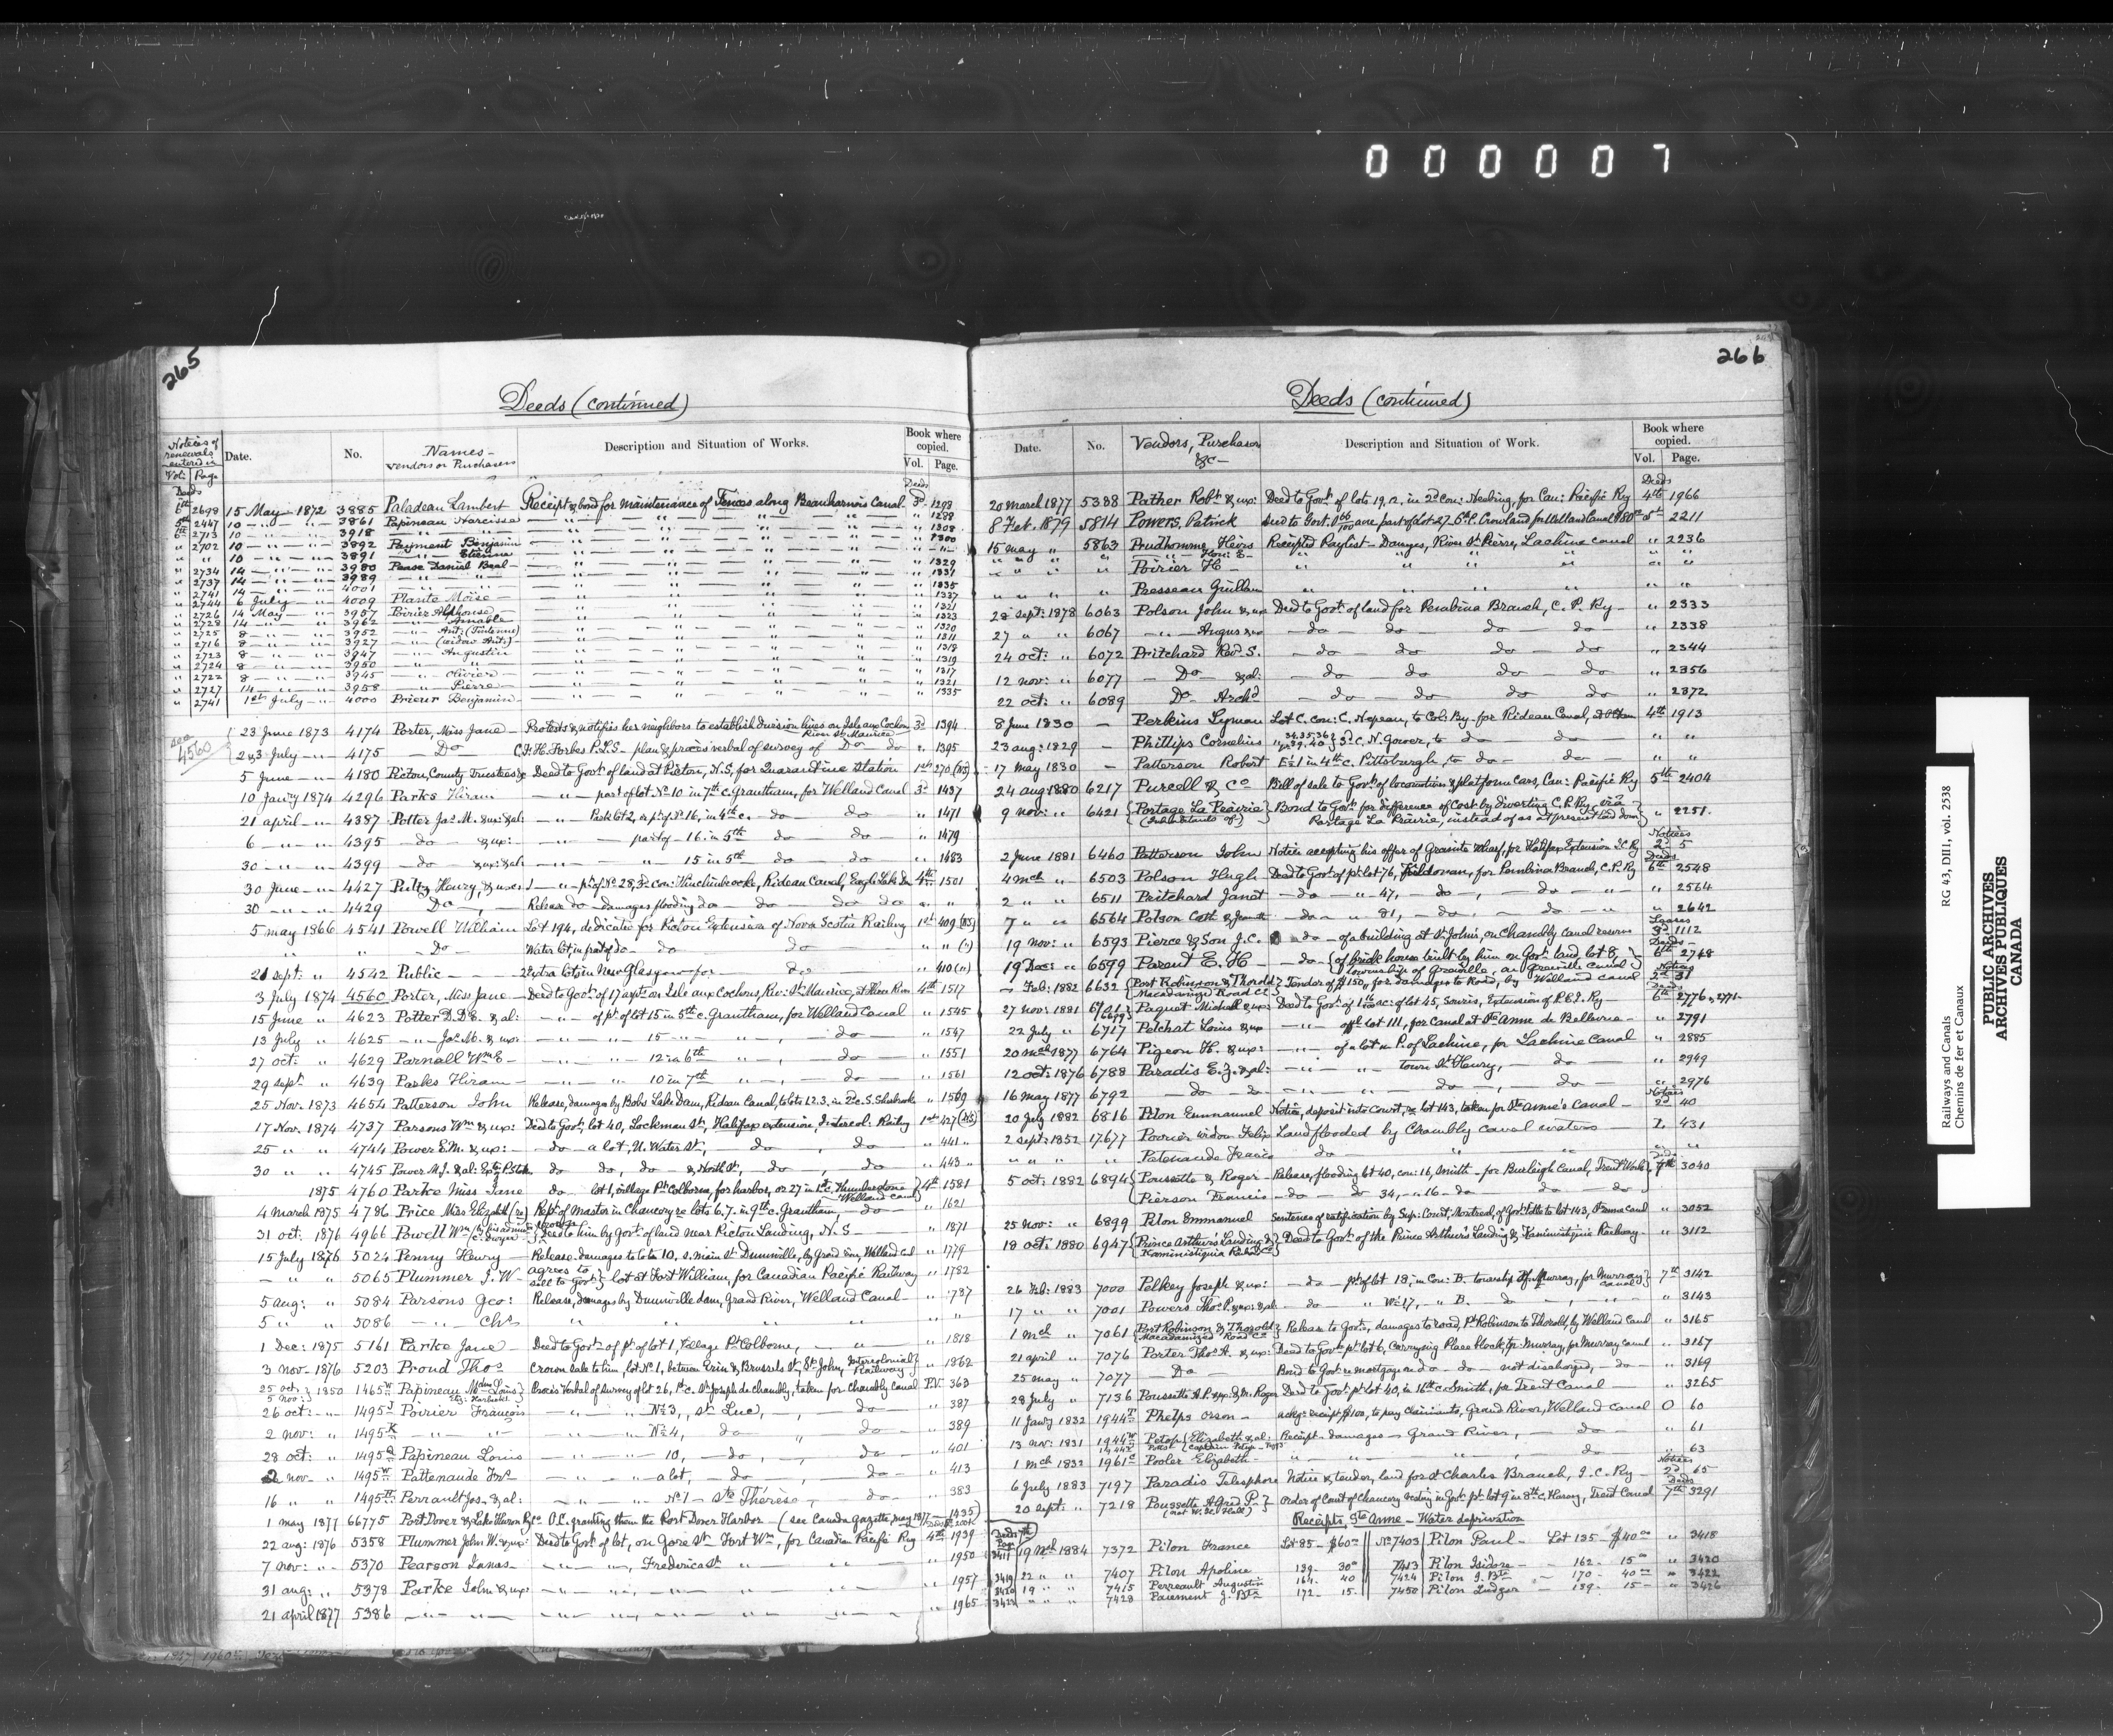 0 0 0 0 0 7
265
Deeds (continued)
Notices of renewals entered in
Vol: Page
Date.
No.
Names - vendors or Purchasers
Description and Situation of Works.
Book where copied.
Vol. Page.
Deeds
6th 2698 15 May 1872 3885 Paladeau Lambert Receipt & bond for maintenance of Fences along Beauharnois Canal 3d 1298
5th 2447 10 " " 3861 Papineau Narcisse " " " " " 1288
6th 2713 10 " " 3918 " " " " " " 1308
" 2702 10 " " 3892 Payment Benjamin " " " " " 1300
" " 10 " " 3891 " Etienne " " " " "
" 2734 14 " " 3980 Pease Daniel Baal " " " " " 1329
" 2737 14 " " 3989 " " " " " " 1331
" 2741 14 " " 4001 " " " " " " 1335
" 2744 6 July " 4009 Plante Moise " " " " " 1337
" 2726 14 May " 3957 Poirier Alphonse " " " " " 1321
" 2728 14 " " 3962 " Amable " " " " " 1323
" 2725 8 " " 3952 " Ant: " " " " " 1320
" 2716 8 " " 3927 " (widow Ant:) " " " " " 1311
" 2723 8 " " 3947 " Augustin " " " " " 1318
" 2724 8 " " 3950 " " " " " " " 1319
" 2722 8 " " 3945 " Olivier " " " " " 1317
" 2727 14 " " 3958 " Pierre " " " " " 1321
" 2741 1st July " 4000 Prieur Benjamin " " " " " 1335
see 4560
23 June 1873 4174 Porter, Miss Jane - Protests & notifies her neighbors to establish division lines on Isle aux Cochons River St. Maurice 3d 1394
2 & 3 July " 4175 Do C.F.H. Forbes P.L.S - plan & procès verbal of survey of Do do " 1395
5 June " 4180 Picton, County Trustees Deed to Govt. of land at Picton, N.S, for Quarantine Station 1st 270 (NS)
10 Janry 1874 4296 Parks Hiram " part of lot No 10 in 7th c. Grantham, for Welland Canal 3d 1437
21 april " 4387 Potter Jas. M. & ux: & al: " Park lot 2, & pt of No 16, in 4th c. do do " 1471
6 " " 4395 do & ux: " part of 16 in 5th do do " 1479
30 " " 4399 do & ux: & al: " " 15 in 5th do do " 1483
30 June " 4427 Pultz Henry, & uxes " pt of No 28, 3d con: Hinchinbrooke, Rideau Canal, Eagle Lake Dam 4th 1501
30 " " 4429 Do Release do damages flooding do do do do " "
5 may 1866 4541 Powell William Lot 194, dedicated for Picton Extension of Nova Scotia Railway 1st 409 (NS)
" " Do Water lot, in front of do do do " " (")
21 sept: " 4542 Public Extra lots in New Glasgow for do " 410 (")
3 July 1874 4560 Porter, Miss Jane Deed to Govt. of 17 arpts on Isle aux Cochons, Riv: St. Maurice, at Three Rivers 4th 1517
15 June " 4623 Potter D.D'E. & al: " of pt of lot 15 in 5th c. Grantham, for Welland Canal " 1545
13 July " 4625 " Jas. M. & ux: " " 15 " " , do " 1547
27 oct: " 4629 Parnall Wm E " " 12 in 6th " , do " 1551
29 sept " 4639 Parks Hiram " " 10 in 7th " , do " 1561
25 Nov. 1873 4654 Patterson John Release, damages by Bobs Lake Dam, Rideau Canal, to lots 12.3. in 2d c. S. Sherbrooke " 1569
17 Nov. 1874 4737 Parsons Wm & ux: Deed to Govt. lot 40, Lockman St, Halifax extension, Intercol: Railway 1st 427 (NS)
25 " " 4744 Power E.M. & ux: do - a lot, U. Water St, do do " 441 "
30 " " 4745 Power M.J. & al: do do, do & North St, do , do " 443 "
1875 4760 Parke Miss Jane do lot 1, village Pt Colborne, for harbor, or 27 in 1st c. Humberstone Welland Canal 4th 1581
4 March 1875 4786 Price Miss Elizabeth (re) Rept. of Master in Chancery re lots 6.7. in 9th c. Grantham, do " 1621
31 oct: 1876 4966 Powell Wm (by his adminr C. Dwyer) Deed to him by Govt. of land near Picton Landing, N. S " 1871
15 July 1876 5024 Penny Henry Release. damages to lots 10, s. main St. Dunnville, by Grand Riv, Welland Canl " 1779
" " 5065 Plummer J. W agrees to sell to Govt. lot at Fort William, for Canadian Pacific Railway " 1782
5 aug: " 5084 Parsons Geo: Release, damages by Dunnville dam, Grand River, Welland Canal " 1737
5 " " 5086 " Chs " " " " " "
1 Dec: 1875 5161 Parke Jane Deed to Govt. of pt of lot 1, village Pt Colborne, " " 1818
3 Nov. 1876 5203 Proud Thos Crown sale to him, lot No 1, between Erin & Brussels St. St. John, Intercolonial Railway " 1862
25 oct. 5 Nov: 1850 1465 Papineau Mdm Louis Procès Verbal of survey of lot 26, 1st c. St Joseph de Chambly, taken for Chambly Canal P.V. 363
26 oct: " 1495 J Poirier François " " No 3, St Luc, , do " 387
2 nov: " 1495 K " " " " No 4, do , do " 389
28 oct: " 1495 Papineau Louis " " 10, do , do " 401
2 nov " 1495 Pattenaude Frs " " a lot, do , do " 413
16 " " 1495 Perrault Jos. & al: " " No 1 - Ste Thérèse , do " 383
1 may 1877 66775 Port Dover & Lake Huron Ry Co O.C. granting them the Port Dover Harbor - (see Canada gazette, may 1877 - 1435)
22 aug: 1876 5358 Plummer John W. & ux: Deed to Govt. of lot, on Gore St. Fort Wm, for Canadian Pacific Ry 4th 1939
7 nov: " 5370 Pearson Innas " " , Frederica St " " " 1950
31 aug: " 5378 Parke John & ux: " " " " " " 1957
21 april 1877 5386 " " " " " " " " 1965
266
Deeds (continued)
Date.
No.
Vendors, Purchasers &c -
Description and Situation of Work.
Book where copied.
Vol. Page.
Deeds
20 March 1877 5388 Pather Robt. & ux: Deed to Govt. of lots 19, 12. in 2d Con: Neebing, for Can: Pacific Ry 4th 1966
8 Feb. 1879 5814 Powers, Patrick Deed to Govt. 0 66/100 acre part of lot 27. 6th C. Crowland for Welland Canal $80 5th 2211
15 may " 5863 Prudhomme Heirs Receipted Paylist - Damages, River St Pierre, Lachine Canal " 2236
" " " " Hon: E " " " " "
" " " Poirier H " " " " "
" " " Presseau Guillam " " " " "
28 sept: 1878 6063 Polson John & ux Deed to Govt. of land for Pembina Branch, C. P. Ry " 2333
27 " " 6067 " Angus & ux do do do do " 2338
24 oct: " 6072 Pritchard Revd. S. do do do do " 2344
12 nov: " 6077 Do & al: do do do do " 2356
22 oct: " 6089 Do Archd do do do do " 2372
8 June 1830 - Perkins Lyman Lot C. con: C. Nepean, to Col: By for Rideau Canal, 4th 1913
23 aug: 1829 - Phillips Cornelius " 34.35.36 & pt 39.40 3d c. N. Gower, to do do " "
17 May 1830 - Patterson Robert E½ 1 in 4th c. Pittsburgh, to do do " "
24 aug: 1880 6217 Purcell & Co Bill of sale to Govt. of locomotives & platform cars, Can: Pacific Ry 5th 2404
9 nov: " 6421 Portage La Prairie (Inhabitants of) Bond to Govt. for difference of cost by diverting C.P. Ry via Portage La Prairie, instead of as at present laid down " 2251.
Notices
2 June 1881 6460 Patterson John Notice accepting his offer of Granite Wharf, for Halifax Extension I.C Ry 2d 5
Deeds
4 mch " 6503 Polson Hugh Deed to Govt. of pt lot 76, Kildonan, for Pembina Branch, C.P. Ry 6th 2548
2 " " 6511 Pritchard Janet do " 47, do , do " " 2564
7 " " 6564 Polson Cath do " 81, do , do " " 2642
Leases
19 nov: " 6593 Pierce & Son J.C. do of a building at St Johns, on Chambly Canal reserve 3d 1112
Deeds
19 Dec: " 6599 Parent E. H do of brick house built by him on Govt. land, lot 8, township of Grenville, on Grenville Canal 6th 2748
Notices
Feb: 1882 6632 Port Robinson & Thorold Macadamized Road Co Tender of $150, for damages to Road, by Welland Canal 2d 31
Deeds
27 nov: 1881 Paquet Michael & ux: Deed to Govt. of lot 45, Souris, Extension of P.E.I. Ry 6th 2776 & 2771
22 July " 6717 Pelchat Louis & ux " of pt lot 111, for canal at Ste Anne de Bellevue " 2791
20 mch 1877 6764 Pigeon H. & ux: " of a lot in P. of Lachine, for Lachine Canal " 2885
12 oct: 1876 6788 Paradis E. Z. & al: " " town St Henry, do " 2949
16 may 1877 6792 do do " " do , do " 2976
Notices
20 July 1882 6816 Pilon Emmanuel Notice, deposit into Court, re lot 143, taken for Ste Anne's Canal 2d 40
2 sept: 1852 17677 Poirier widow Felix Land flooded by Chambly canal waters L. 431
" " " " Patenaude Francis do " " " "
Deeds
5 oct: 1882 6894 Poussette & Roger Release, flooding lot 40, con: 16, Smith - for Burleigh Canal, Trent Works 7th 3040
Pierson Francis do do 34, " 16 do do do
25 nov: " 6899 Pilon Emmanuel Sentence of ratification by Sup: Court, Montreal, of Govt. title to lot 143, St Anne Canal " 3052
18 oct: 1880 6947 Prince Arthur's Landing & Kaministiquia Railwy Co Deed to Govt. of the Prince Arthur's Landing & Kaministiquia Railway " 3112
26 Feb: 1883 7000 Pelkey Joseph & ux: do pt of lot 18, in Con: B. township of Murray, for Murray Canal 7th 3142
17 " " 7001 Powers Thos. P. & ux: & al do " W½ 17, " B. do , " " 3143
1 mch " 7061 Port Robinson & Thorold Macadamized Road Co Release to Govt., damages to road, Pt Robinson to Thorold, by Welland Canal " 3165
21 april " 7076 Porter Thos. A. & ux: Deed to Govt. pt lot 6, Carrying Place block, tp. Murray, for Murray canal " 3167
25 may " 7077 Do Bond to Govt. re mortgage on do do not discharged, do " 3169
28 July " 7136 Poussette A.P. & ux: & M. Roger Deed to Govt. pt lot 40, in 16th c. Smith, for Trent Canal " 3265
11 Janry 1832 1944 Phelps Orson ackgs. receipt $100, to pay claimants, Grand River, Welland Canal O 60
13 nov: 1831 1944 Petop Elizabeth & al: Receipt - damages - Grand River, do " 61
1 mch 1832 1961 Pooler Elizabeth " " " , do " 63
Notices
6 July 1883 7197 Paradis Telesphore Notice & tender, land for St Charles Branch, I.C. Ry 2d 65
Deeds
20 sept: " 7218 Poussette Alfred P. Order of Court of Chancery vesting in Govt. pt lot 9 in 8th c. Harvey, Trent Canal 7th 3291
Receipts, Ste Anne - Water deprivation
Deeds 7th Page
3411 19 Mch 1884 7372 Pilon France Lot 85 - $60 00 No 7403 Pilon Paul - Lot 135 - $40 00 " 3418
3419 22 " " 7407 Pilon Apoline 139 - 30 00 7413 Pilon Isidore - " 162 - 15 00 " 3420
3420 19 " " 7415 Perreault Augustin 164. 40 7424 Pilon J. Bte - " 170 - 40 00 " 3422
3423 " " " 7428 Paiement J. Bte 172 - 15. 7450 Pilon Ludger - " 139 - 15 - " 3426
Railways and Canals RG 43, DIII, vol. 2538
Chemins de fer et Canaux
PUBLIC ARCHIVES
ARCHIVES PUBLIQUES
CANADA